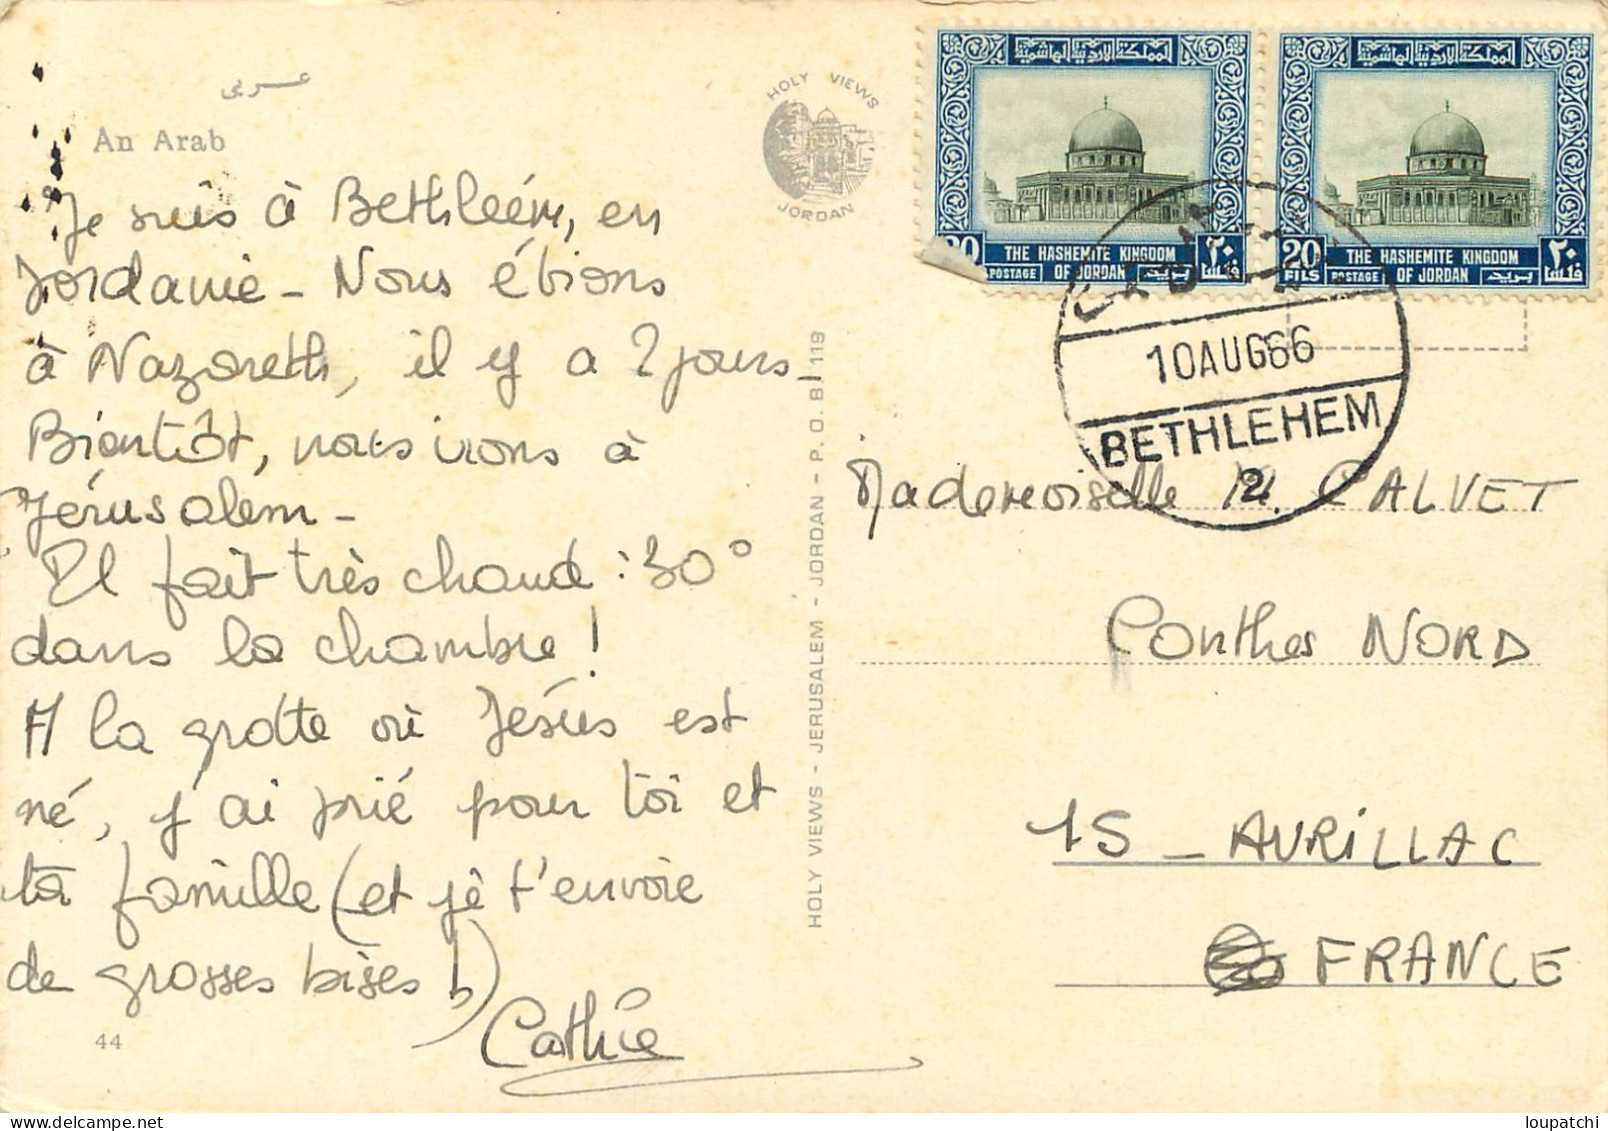 عربي
An Arab
Je suis à Bethléém, en
Jordanie - Nous étions
à Nazareth, il y a 2 jours -
Bientôt, nous irons à
Jérusalém -
Il fait très chaud : 30°
dans la chambre !
A la grotte où Jésus est
né, j'ai prié pour toi et
ta famille (et je t'envoie
de grosses bises !)
Cathie
44
HOLY VIEWS
JORDAN
HOLY VIEWS - JERUSALEM - JORDAN - P. O. B 119
المملكة الاردنية الهاشمية
20
THE HASHEMITE KINGDOM
POSTAGE OF JORDAN بريد
٢٠ فلس
المملكة الاردنية الهاشمية
20 FILS
THE HASHEMITE KINGDOM
POSTAGE OF JORDAN بريد
٢٠ فلس
10AUG66
BETHLEHEM
2
Mademoiselle M. CALVET
Conthes NORD
15 - AURILLAC
FRANCE
loupatchi